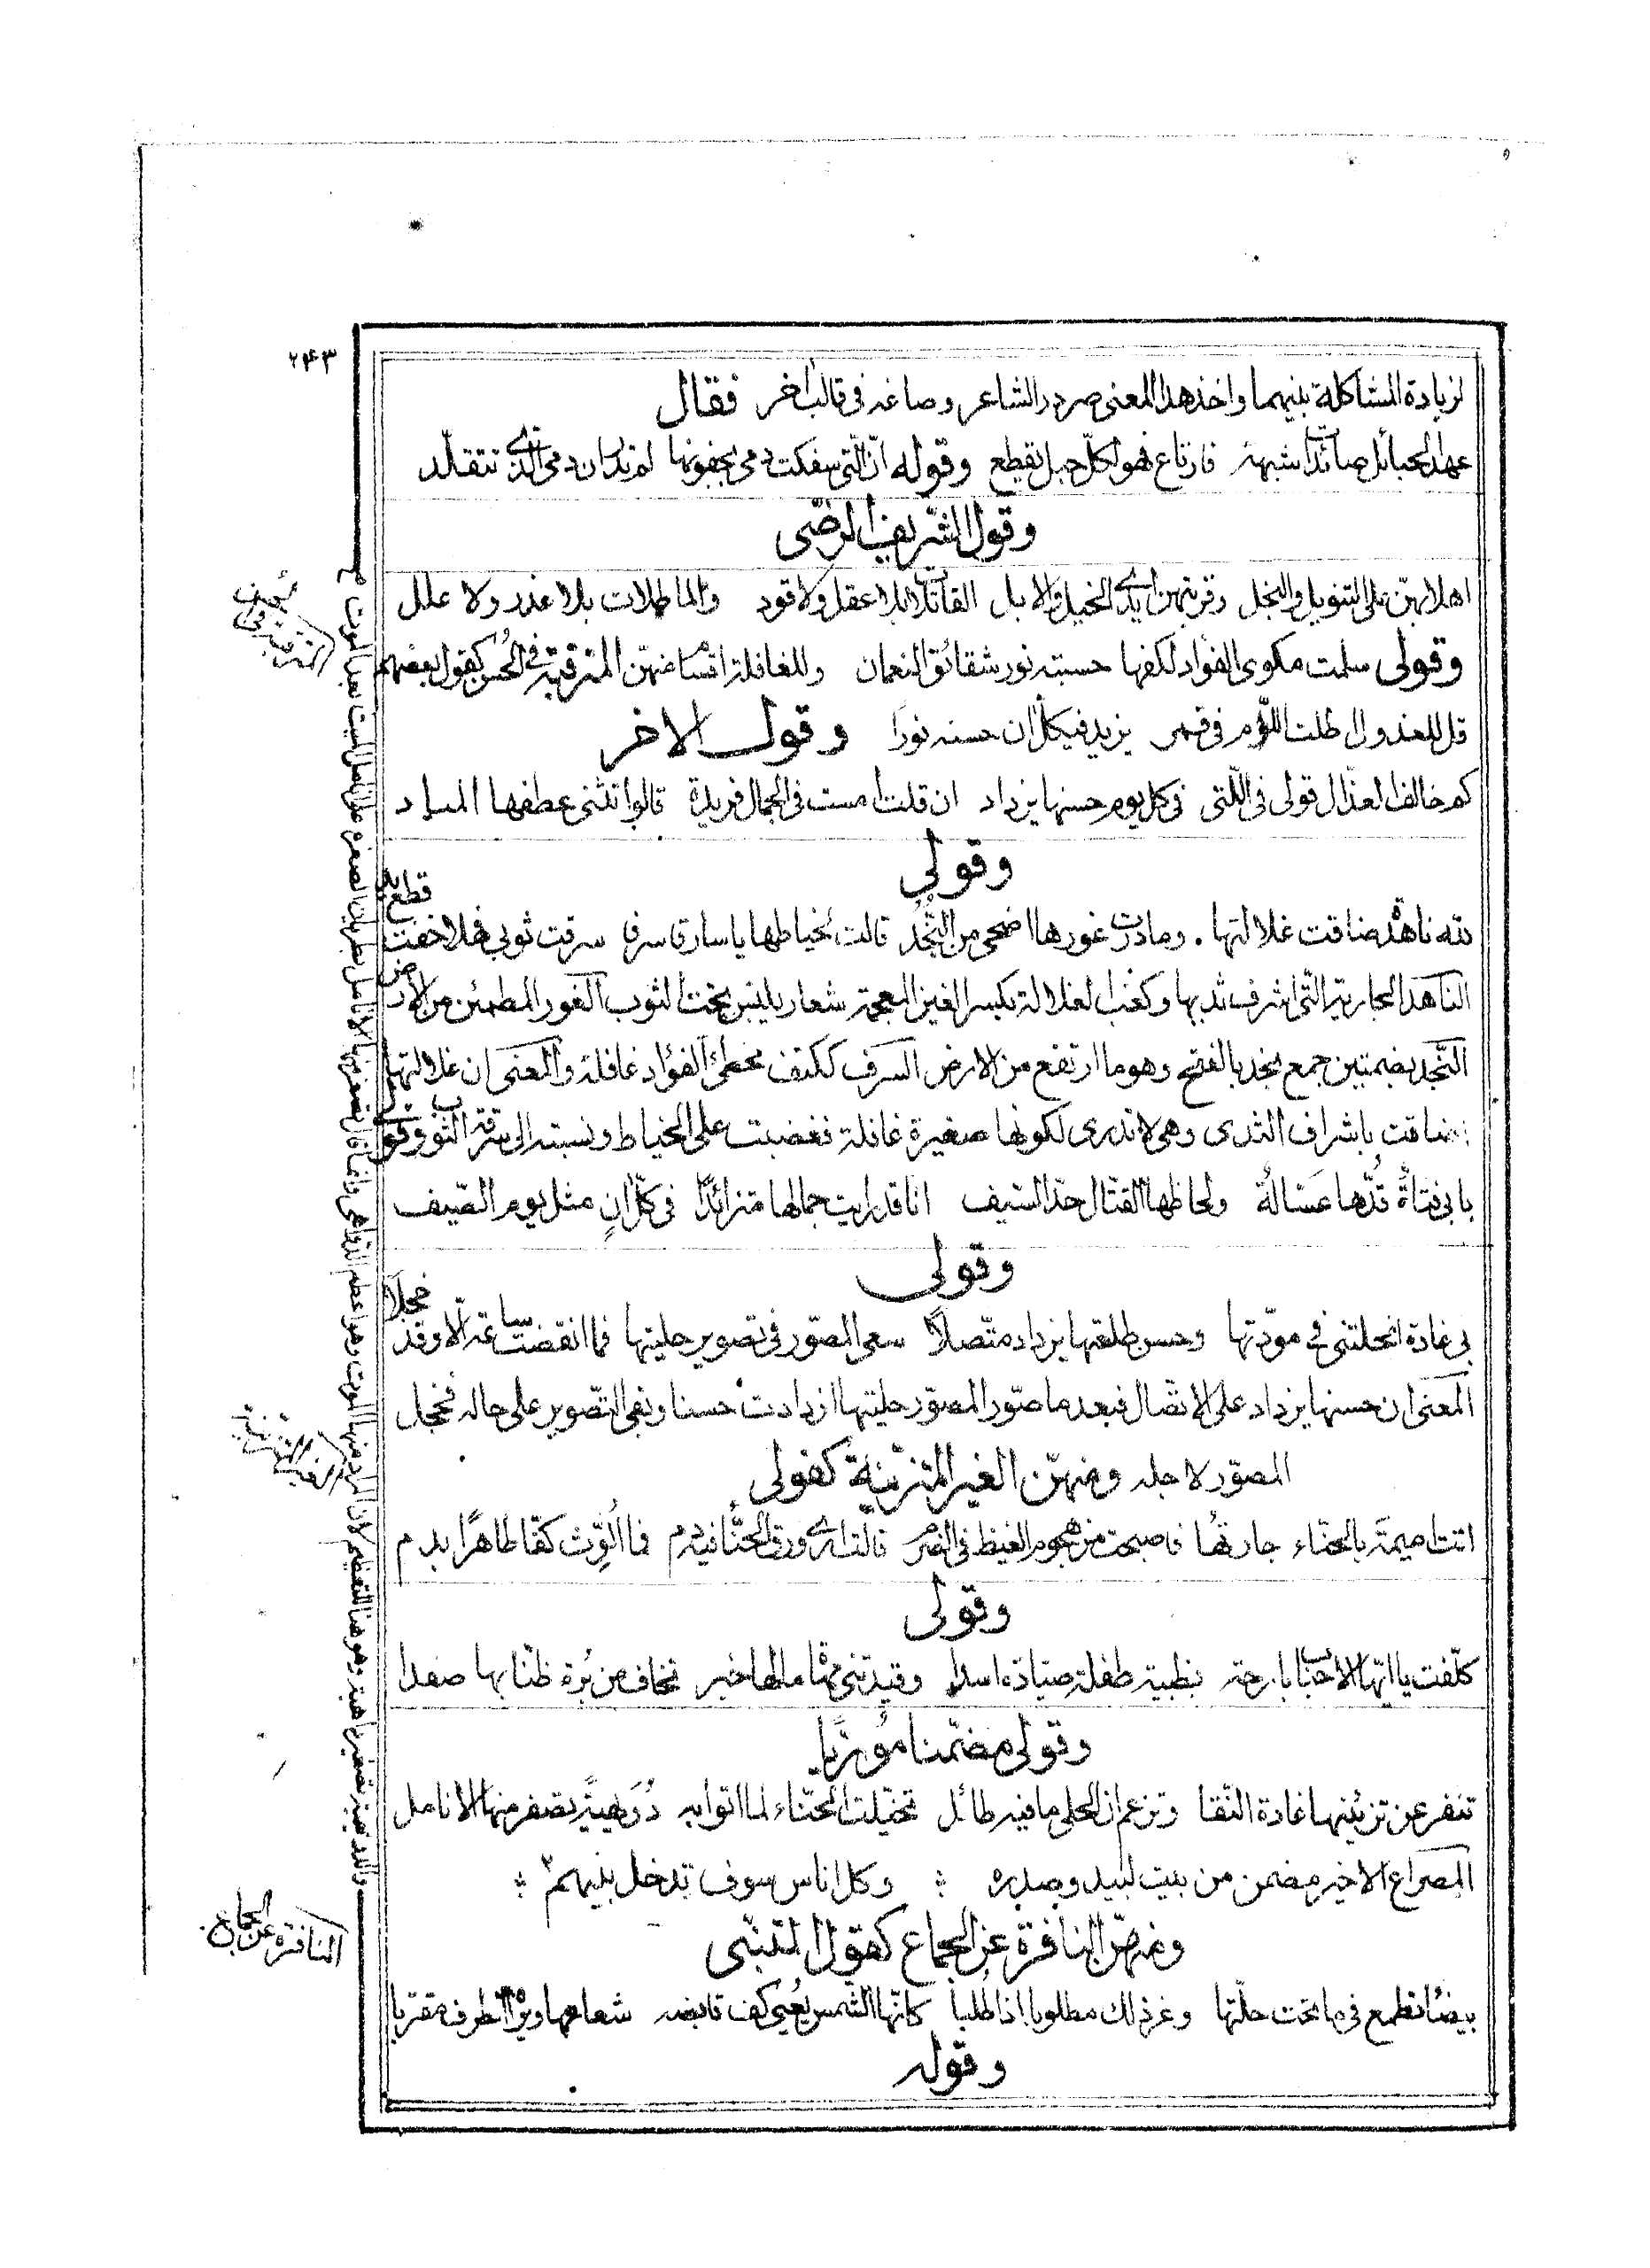 ۲۴۳
لزيادة المشاكلة بينهما واخذ هذا المعنى صردر الشاعر وصاغه فى قالب اخر فقال
عهد الحبائل صائدات شبهه فارتاع فهو لكل حبل يقطع وقوله انّ الّتى سفكت دمى بجفونها لم تدر ان دمى الذى تتقلّد
وقول الشريف الرضى
اهلا بهنّ على التنويل والبخل وقربتهن ايدى الخيل والابل القاتلات بلا عقل ولا قود والماطلات بلا عذر ولا علل
وقولى سلمت مكوى الفؤاد لكفها حسبته نور شقائق النعمان وللغافلة اقسام منهنّ المترقية فى الحسن كقول بعضهم
قل للعذول اطلت اللؤم فى قمر يزيد فى كل ان حسنه نورا وقول الاخر
كم خالف العذّال قولى فى الّتى فى كل يوم حسنها يزداد ان قلت امست فى الجمال فريدة قالوا تثنى عطفها المياد
وقولى
لله ناهدة ضاقت غلالتها ومادرت غورها اضحى من النُّجُد قالت لخياطها يا سارقا سرفا سرقت ثوبى فهلا خفت قطع يد
الناهد الجارية الّتى اشرف ثديها وكعب الغلالة بكسر الغين المعجمة شعار يلبس تحت الثوب الغور المطمئن من الارض
النّجد بضمتين جمع نجد بالفتح وهو ما ارتفع من الارض السرف ككتف مخطئ الفؤاد غافلة والمعنى ان غلالتها
ضاقت باشراف الثدى وهى لا تدرى لكونها صغيرة غافلة فغضبت على الخياط ونسبته الى سرقة الثوب وقولى
بابى فتاةٌ قدّها عسّالةٌ ولحاظها القتال حدّ السّيف انا قد رايت جمالها متزائدًا فى كلّ انٍ مثل يوم الصّيف
وقولى
بى غادة انحلتنى فى مودّتها وحسن طلعتها يزداد متّصلاً سعى المصوّر فى تصوير حليتها فما انقضت ساعة الّا وقد خجلا
المعنى ان حسنها يزداد على الاتّصال فبعد ما صوّر المصوّر حليتها ازدادت حسنا وبقى التّصوير على حاله فخجل
المصوّر لاجله ومنهنّ الغير المتزينة كقولى
اتت اميمة بالحنّاء جارتها فاصبحت من هجوم الغيظ فى الضرم قالت ارى ورق الحنّا فيه دم فما اُلوّث كفّا طاهرًا بدم
وقولى
كلّفت يا ايّها الاحباب ابرحة بظبية طفلة صيّادة اسدا وقيدتنى مما لها خبر تخاف من بُرة ظنّا بها صفدا
وقولى مضمّنا مورّيا
تنفر عن تزئينها غادة النّقا وتزعم ان الحلى ما فيه طائل تخيّلت الحنّاء لما اتوا به دُوَيهيةٌ تصفر منها الانامل
المصراع الاخير مضمن من بيت لبيد وصدره وكل اناس سوف تدخل بينهم
ومنهنّ النافرة عن الجماع كقول المتنبّى
بيضاء تطمع فى ما تحت حلّتها وعز ذلك مطلوبا اذا طلبا كانّها الشّمس يُعيى كف قابضه شعاعها ويراه الطرف مقتربا
وقوله
المترقية فى الحسن
الغير المتزينة
النافرة عن الجماع
والدويهية تصغير داهية وهو هنا للتعظيم لان المراد منها الموت وهو اعظم الدواهى وانما قال تصفر منها الانامل